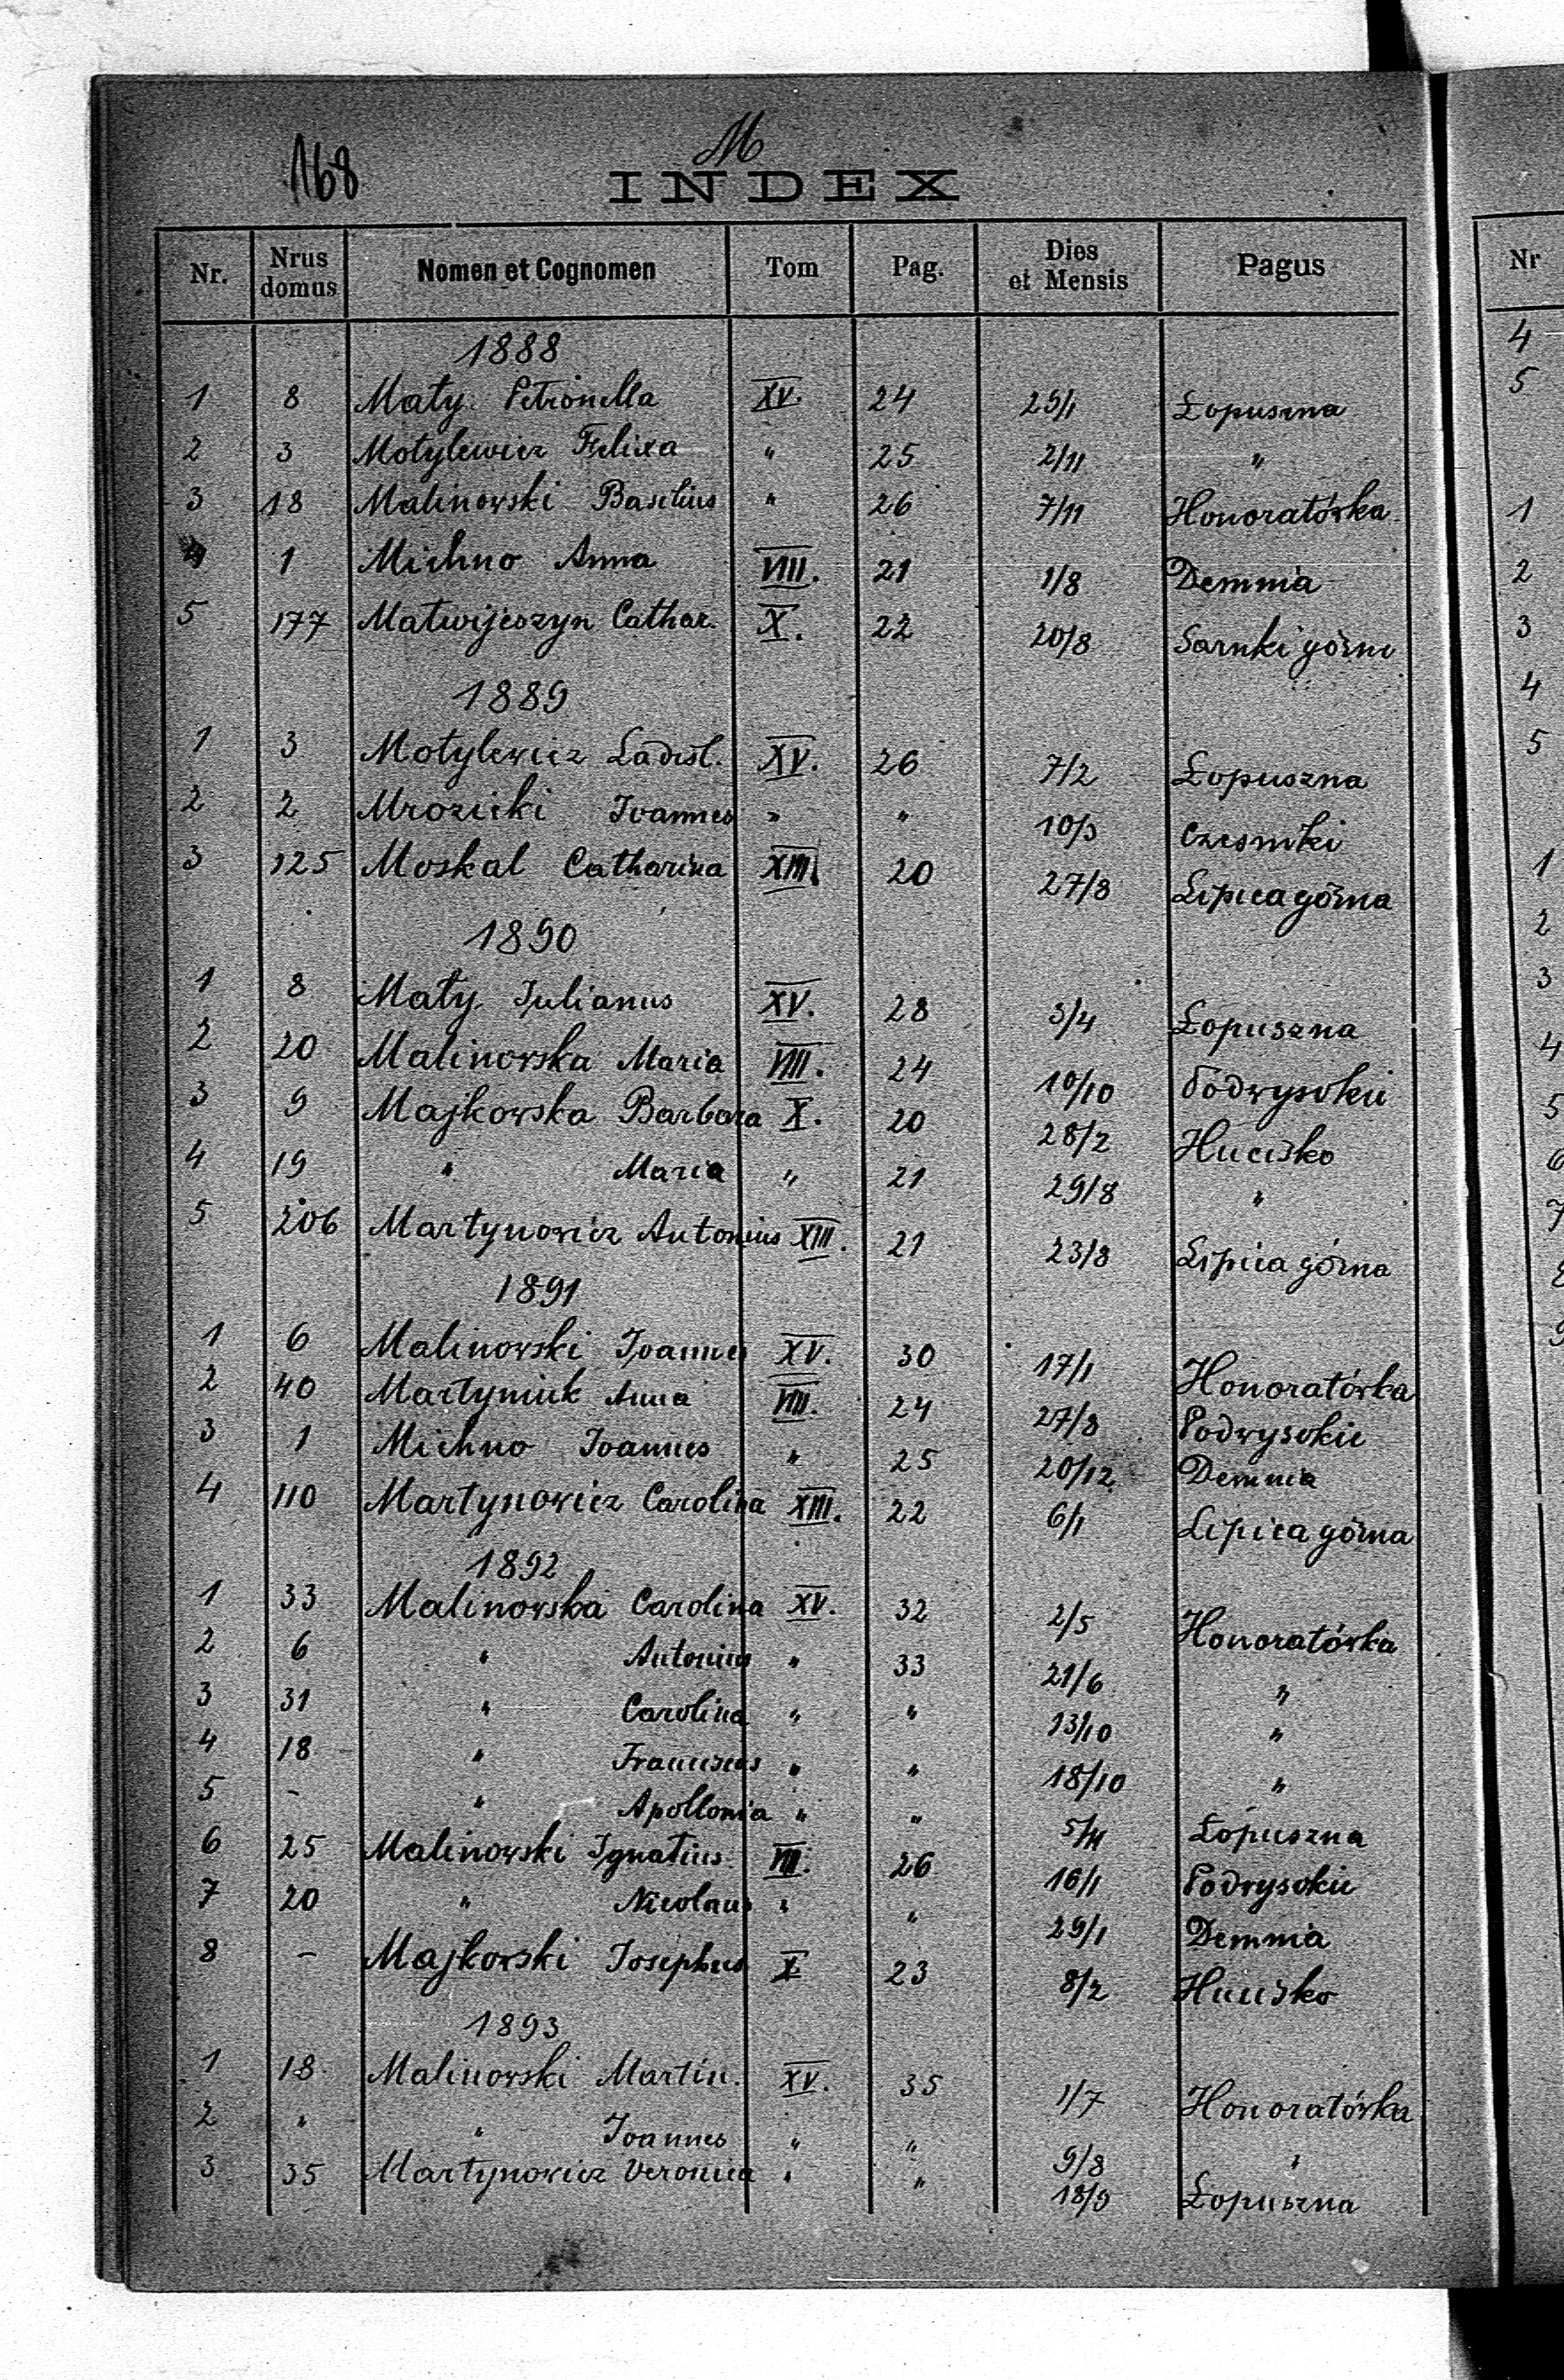 168
M
INDEX
Nr. Nrus domus Nomen et Cognomen Tom Pag. Dies et Mensis Pagus
1888
1 8 Maty Petronella XV. 24 25/1 Łopuszna
2 3 Motylewicz Felixa " 25 2/11 "
3 18 Malinowski Basilius " 26 7/11 Honoratówka
4 1 Michno Anna VIII. 21 1/8 Demnia
5 177 Matwijeszyn Cathar. X. 22 20/8 Sarnki górne
1889
1 3 Motylewicz Ladisl. XV. 26 7/2 Łopuszna
2 2 Mrozicki Joannes " " 10/3 Czesniki
3 125 Moskal Catharina XIII. 20 27/8 Lipica górna
1890
1 8 Maty Julianus XV. 28 3/4 Łopuszna
2 20 Malinowska Maria VIII. 24 10/10 Podwysokie
3 9 Majkowska Barbara X. 20 28/2 Hucisko
4 19 " Maria " 21 29/8 "
5 206 Martynowicz Antonius XIII. 21 23/8 Lipica górna
1891
1 6 Malinowski Joannes XV. 30 17/1 Honoratówka
2 40 Martyniuk Anna VIII. 24 27/8 Podwysokie
3 1 Michno Joannes " 25 20/12 Demnia
4 110 Martynowicz Carolina XIII. 22 6/1 Lipica górna
1892
1 33 Malinowska Carolina XV. 32 2/5 Honoratówka
2 6 " Antonius " 33 21/6 "
3 31 " Carolina " " 13/10 "
4 18 " Franciscus " " 18/10 "
5 - " Apollonia " " 5/4 Łopuszna
6 25 Malinowski Ignatius VIII. 26 16/1 Podwysokie
7 20 " Nicolaus " " 29/1 Demnia
8 - Majkowski Josephus X 23 8/2 Hucisko
1893
1 18 Malinowski Martin. XV. 35 1/7 Honoratówka
2 " " Joannes " " 9/8 "
3 35 Martynowicz Veronica " " 18/9 Łopuszna
Nr
4
5
1
2
3
4
5
1
2
3
4
5
6
7